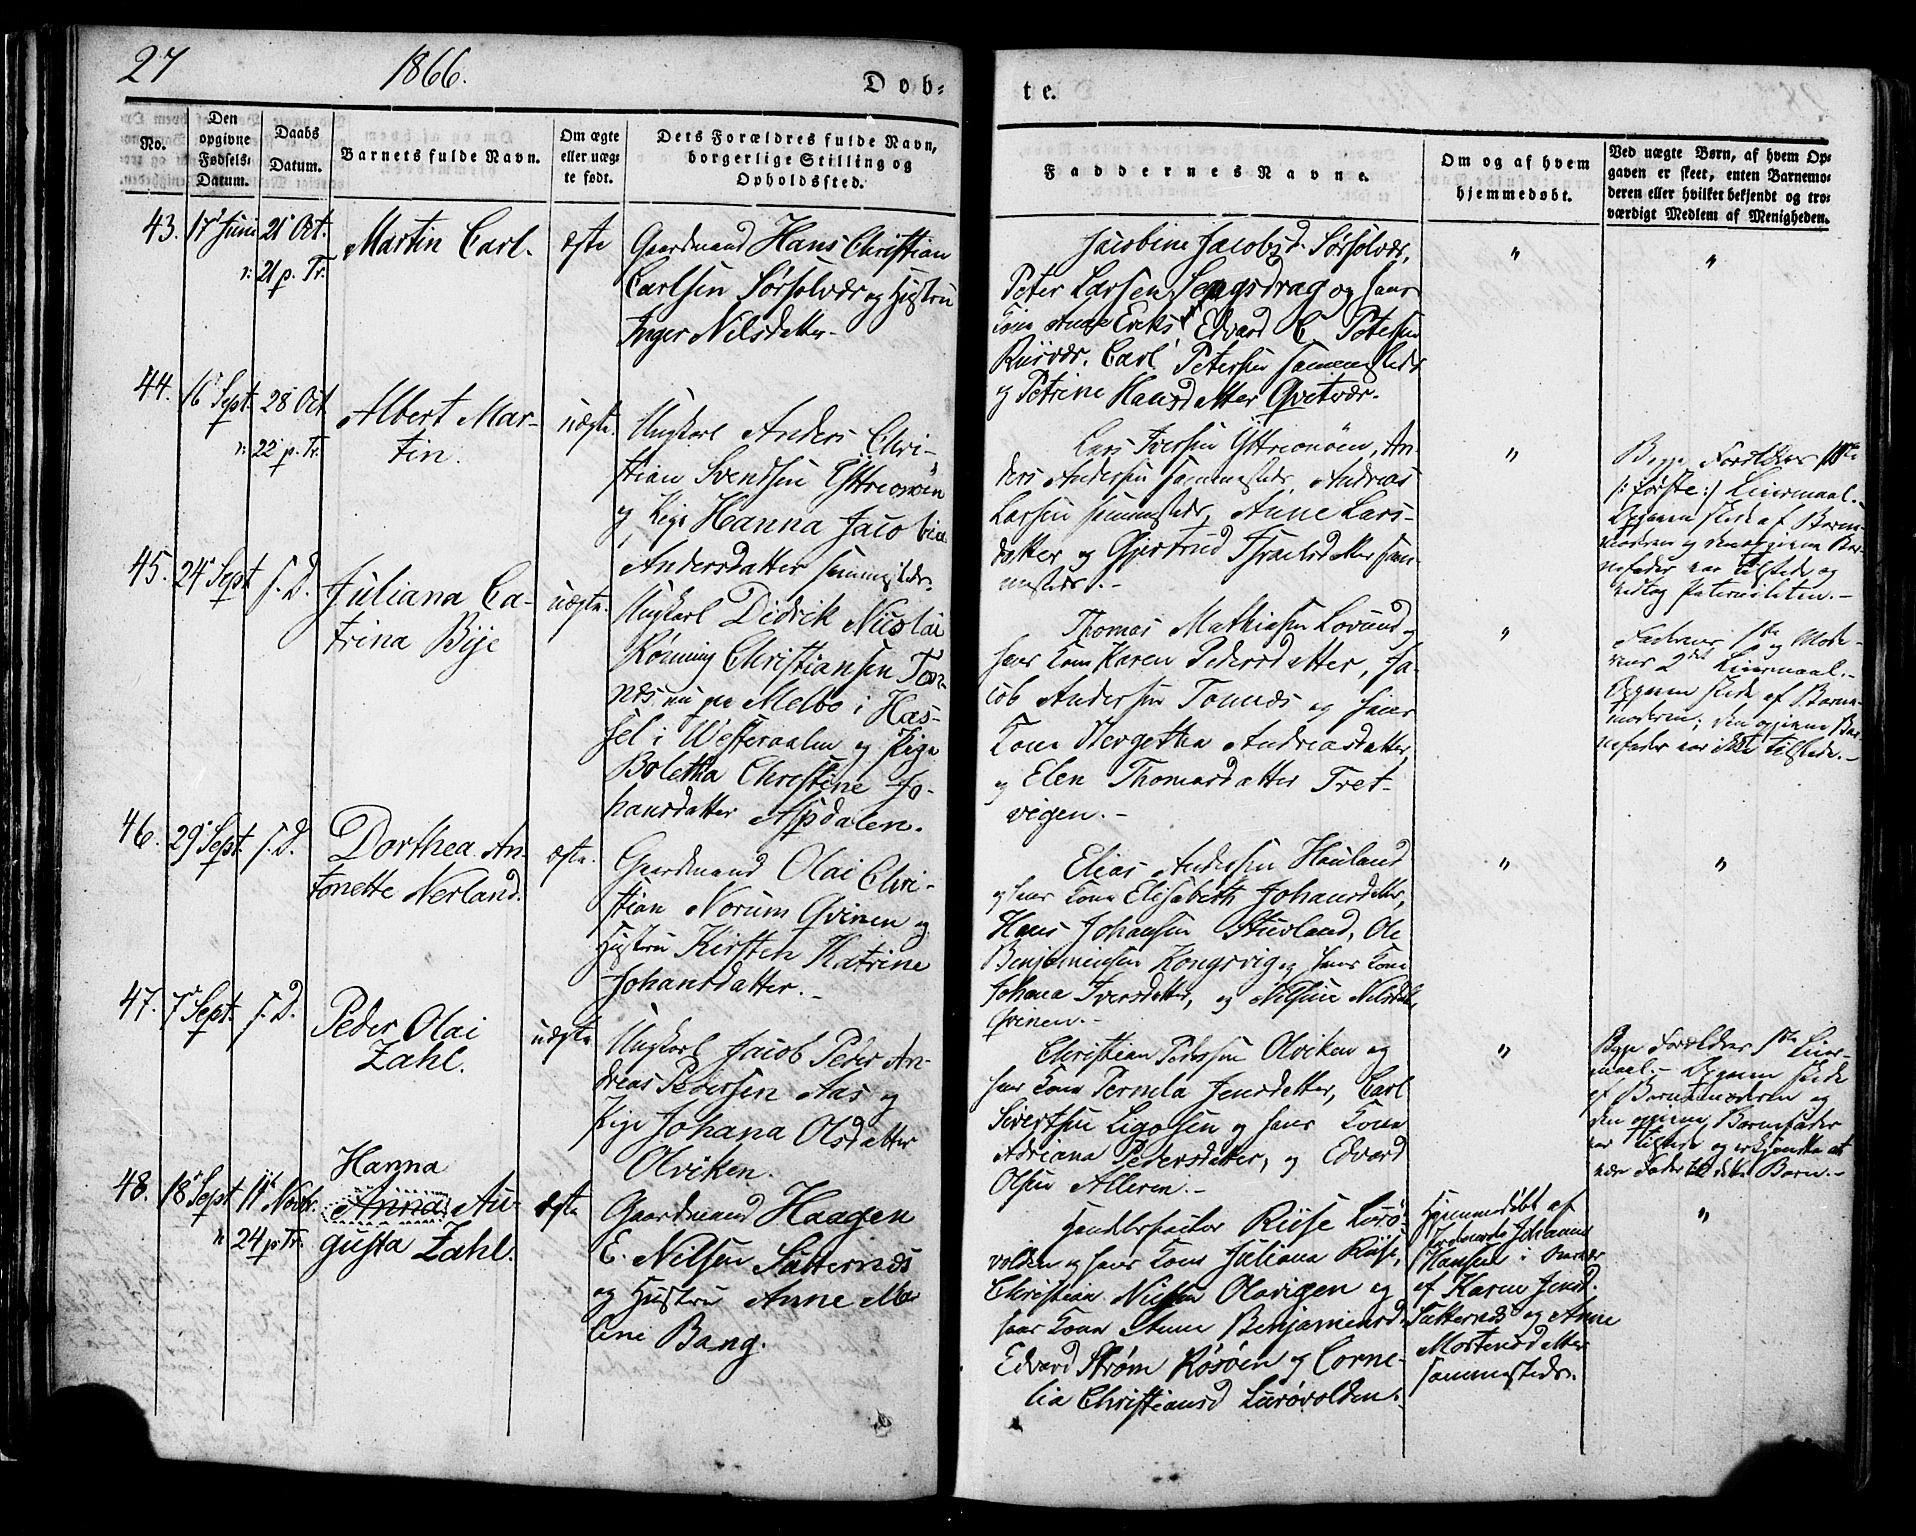 27
1866.
Døb-
te.
No.
Den
opgivne
Fødsels-
Datum.
Daabs
Datum.
Barnets fulde Navn.
Om ægte
eller uæg-
te født.
Dets Forældres fulde Navn,
borgerlige Stilling og
Opholdssted.
Faddernes Navne.
Om og af hvem
hjemmedøbt.
Ved uægte Børn, af hvem Op-
gaven er skeet, enten Barnemo-
deren eller hvilket bekjendt og tro-
værdigt Medlem af Menigheden.
43.
17 Juni
21 Oct.
21 p. Tr.
Martin Carl.
ægte
Gaardmand Hans Christian
Carlsen Sørsolvær og Hustru
Inger Nilsdatter.
Jacobine Jacobsd. Sørsolvær,
Peter Larsen Sengsdrag og hans
Kone Edvard C Petersen
Carl Petersen sammesteds
og Petrine Hansdatter Qvitvær.
"
"
44.
16 Sept.
28 Oct
22 p. Tr.
Albert Mar-
tin.
uægte.
Ungkarl Anders Chri-
stian Svendsen Yttreonøen
og Pige Hanna Jacobia
Andersdatter sammesteds.
Lars Iversen Yttreonøen, An-
ders Andersen sammesteds, Andreas
Larsen sammesteds, Anne Lars-
datter og Gjertrud Israelsdatter sam-
mesteds.-
"
Begge Forældres 1ste
/: første :/ Leiermaal.-
Opgaven skede af Barne-
moderen og den opgivne Bar-
nefader var tilstede og
vedtog Paterniteten.-
45.
24 Sept
s. D.
Juliana Ca-
trina Bije
uægte.
Ungkarl Didrik Nicolai
Rønning Christiansen Ton-
næs, nu paa Melbo i Has-
sel i Westeraalen og Pige
Boletha Christine Jo-
hansdatter Aspdalen.
Thomas Mathiasen Lovund og
hans Kone Karen Pedersdatter, Ja-
cob Andersen Tonnæs og hans
Kone Hergetha Andreasdatter
og Elen Thomasdatter Tret-
vigen.-
"
Faderens 1ste og Mode-
rens 2det Leiermaal.-
Opgaven skede af Barne-
moderen; den opgivne Bar-
nefader var ikke tilstede.-
46.
29 Sept.
s. D.
Dorthea An-
tonette Nerland.
ægte.
Gaardmand Olai Chri-
stian Norum Qvinen og
Hustru Kirsten Katrine
Johansdatter.-
Elias Andersen Hauland
og hans Kone Elisabeth Johansdatter,
Hans Johansen Stuvland, Ole
Benjaminsen Kongsvig og hans Kone
Johana Iversdatter, og Nilsine Nilsdatter
Qvinen.-
"
"
47.
7 Sept.
s. D.
Peder Olai
Zahl.
uægte
Ungkarl Jacob Peder An-
dreas Pedersen Aas og
Pige Johana Olsdatter
Olviken.
Christian Pedersen Olviken og
hans Kone Pernila Jensdatter, Carl
Sivertsen Ligosen og hans Kone
Adriana Pedersdatter, og Edvard
Olsen Alleren.-
"
Begge Forældres 1ste Leier-
maal.- Opgaven skede
af Barnemoderen og
den opgivne Barnefader
var tilstede og erkjendte at
være Fader til dette Barn.-
48.
18 Sept
11 Novbr.
24 p. Tr.
Hanna
Anna Au-
gusta Zahl.
ægte
Gaardmand Haagen
E. Nilsen Sætternæs
og Hustru Anne Ma
lene Bang.
Handelsfactor Riise Lurø-
volden og hans Kone Juliana Riise,
Christian Nielsen Olvigen og
hans Kone Anne Benjaminsd.
Edvard Strøm Rosøen og Corne-
lia Christiansd Lurøvolden.
Hjemmedøbt af
Johanne
Hansen i
af Karen Jensd.
Sætternæs og Anne
Mortensdatter
sammesteds.
"